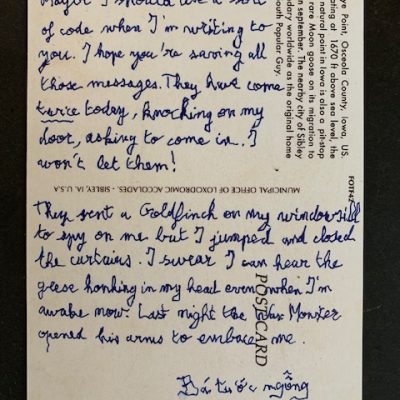 Maybe I should use a sort
of code when I'm writing to
you. I hope you're saving all
those messages. They have come
twice today, knocking on my
door, asking to come in... I
won't let them!
They sent a Goldfinch on my windowsill
to spy on me but I jumped and closed
the curtains. I swear I can hear the
geese honking in my head even when I'm
awake now. Last night the Wax Monster
opened his arms to embrace me.
Bá tước ngỗng
MUNICIPAL OFFICE OF LOXODROMIC ACCOLADES - SIBLEY, IA U.S.A
POSTCARD
FOTF42
ye Point, Osceola County, Iowa, US.
ating at 1670 ft above sea level, the
natural point in Iowa is also a pit-stop
rare Moon goose on its migration to
in september. The nearby city of Sibley
dary worldwide as the original home
outh Popular Guy.